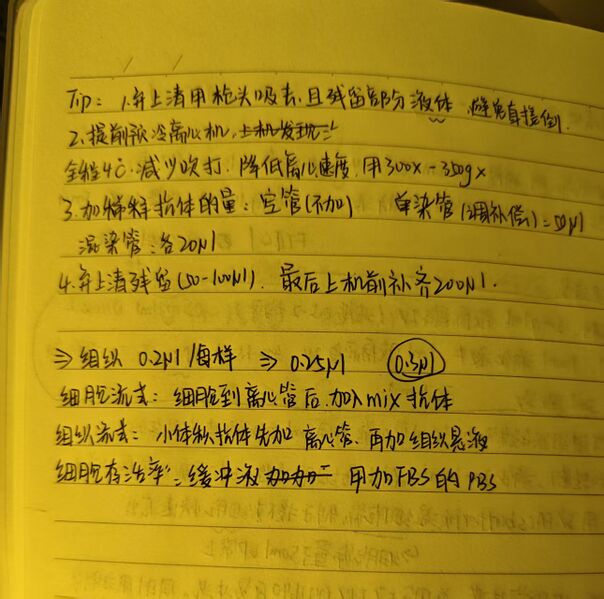 Tip: 1.弃上清用枪头吸去,且残留部分液体,避免直接倒.
2.提前预冷离心机,上机发现
全程4℃.减少吹打.降低离心速度.用300x-350gx
3.加稀释抗体的量:空管(不加) 单染管(调补偿)=50μl
混染管:各20μl
4.弃上清残留(50-100μl). 最后上机前补齐200μl.
⇒组织 0.2μl/每样 ⇒ 0.25μl 0.3μl
细胞流式:细胞到离心管后.加入mix抗体
组织流式:小体积抗体先加 离心管、再加组织悬液
细胞存活率:缓冲液 用加FBS的PBS